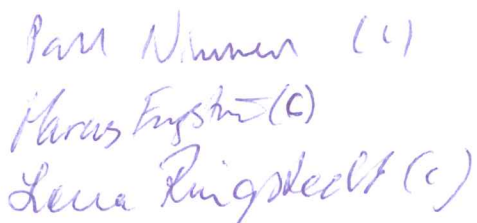 Paul Nimmer (C)
Marcus Engström (C)
Lena Ringstedt (C)